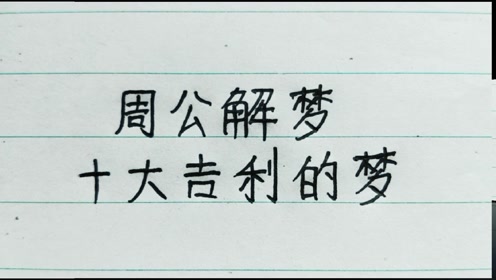 周公解梦
十大吉利的梦